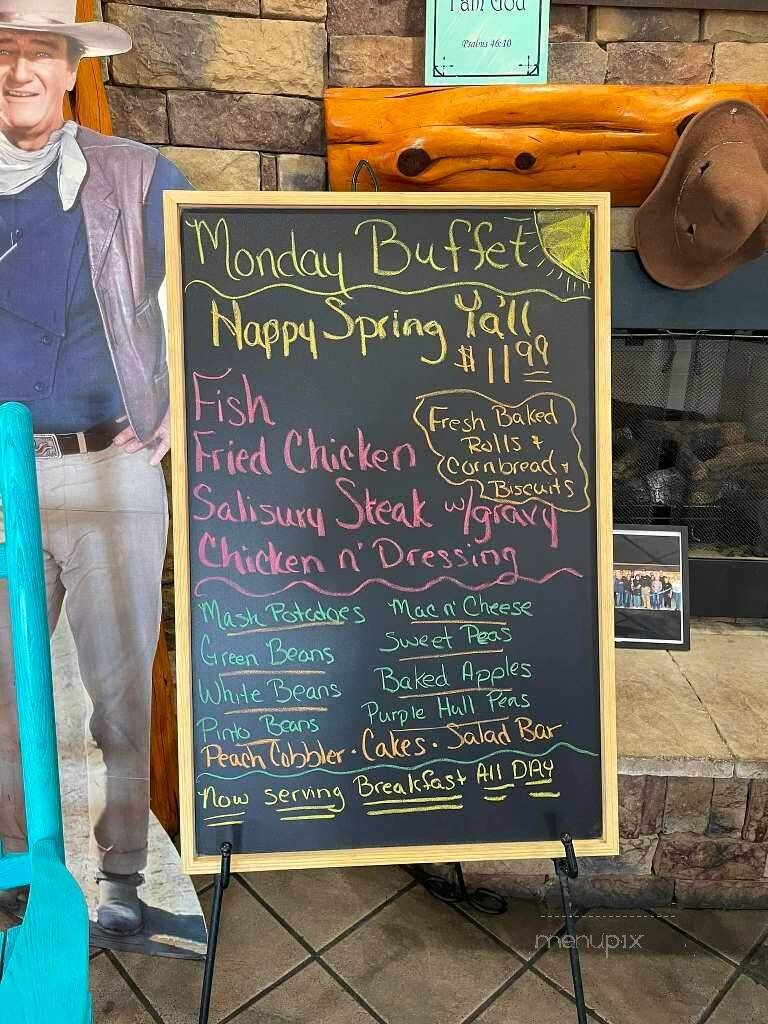 I am God
Psalms 46:10
Monday Buffet
Happy Spring Ya'll
$11.99
Fish
Fried Chicken
Fresh Baked
Rolls +
Cornbread +
Biscuits
Salisury Steak w/gravy
Chicken n' Dressing
Mash Potatoes
Mac n' Cheese
Green Beans
Sweet Peas
White Beans
Baked Apples
Pinto Beans
Purple Hull Peas
Peach Cobbler · Cakes · Salad Bar
Now serving Breakfast All DAY
menupix